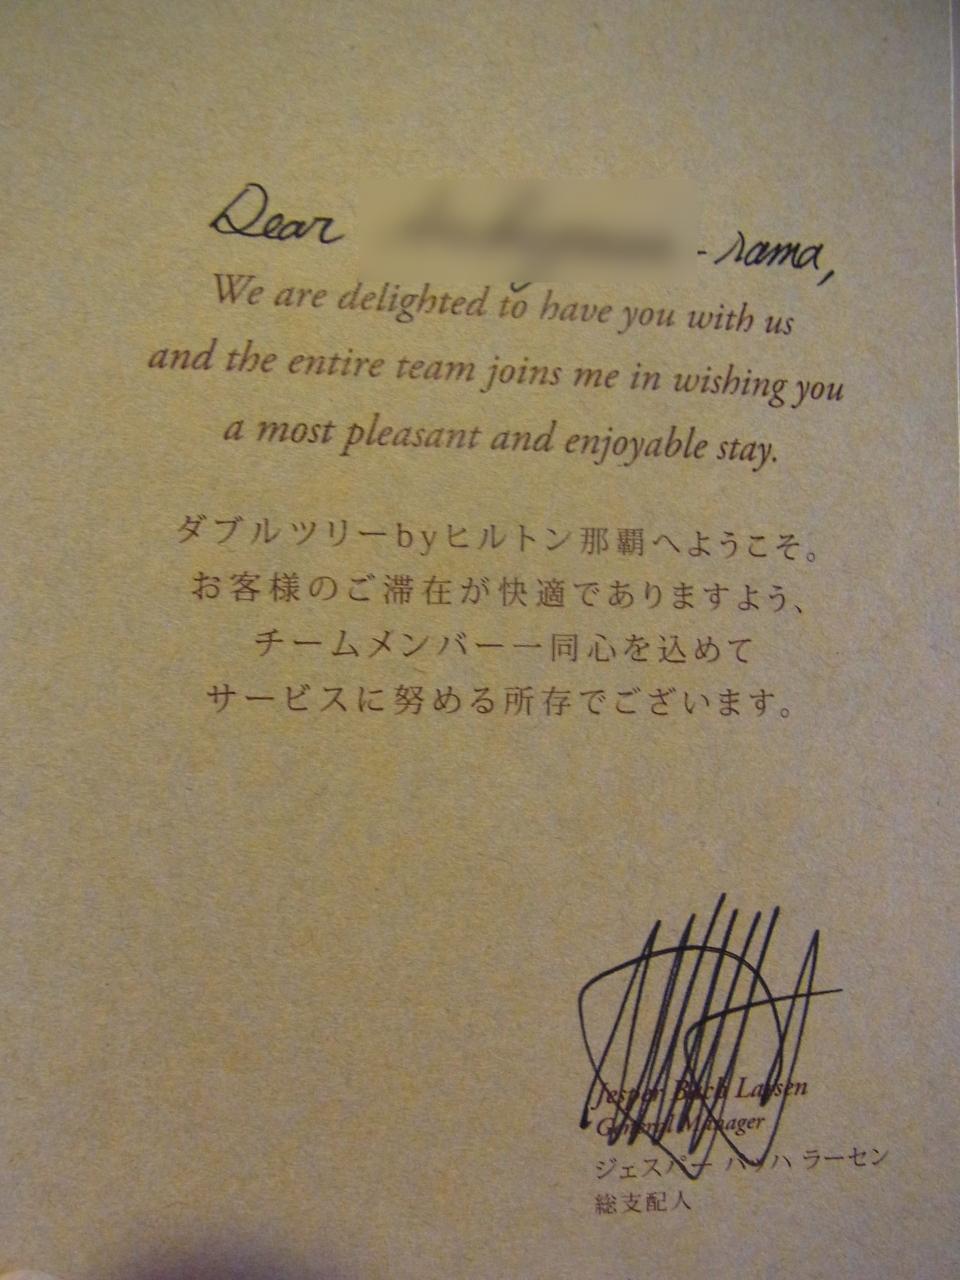 Dear - sama,
We are delighted to have you with us
and the entire team joins me in wishing you
a most pleasant and enjoyable stay.
ダブルツリーbyヒルトン那覇へようこそ。
お客様のご滞在が快適でありますよう、
チームメンバー一同心を込めて
サービスに努める所存でございます。
Jesper Bach Larsen
General Manager
ジェスパー バッハ ラーセン
総支配人